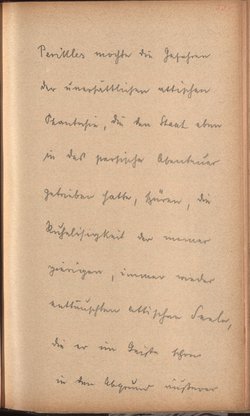 Perikles mochte die Gefahren
der unersättlichen attischen
Phantasie, die den Staat eben
in das persische Abenteuer
getrieben hatte, spüren, die
Ruhelosigkeit der immer
gierigen, immer wieder
enttäuschten attischen Seele,
die er im Geiste schon
in den Abgrund